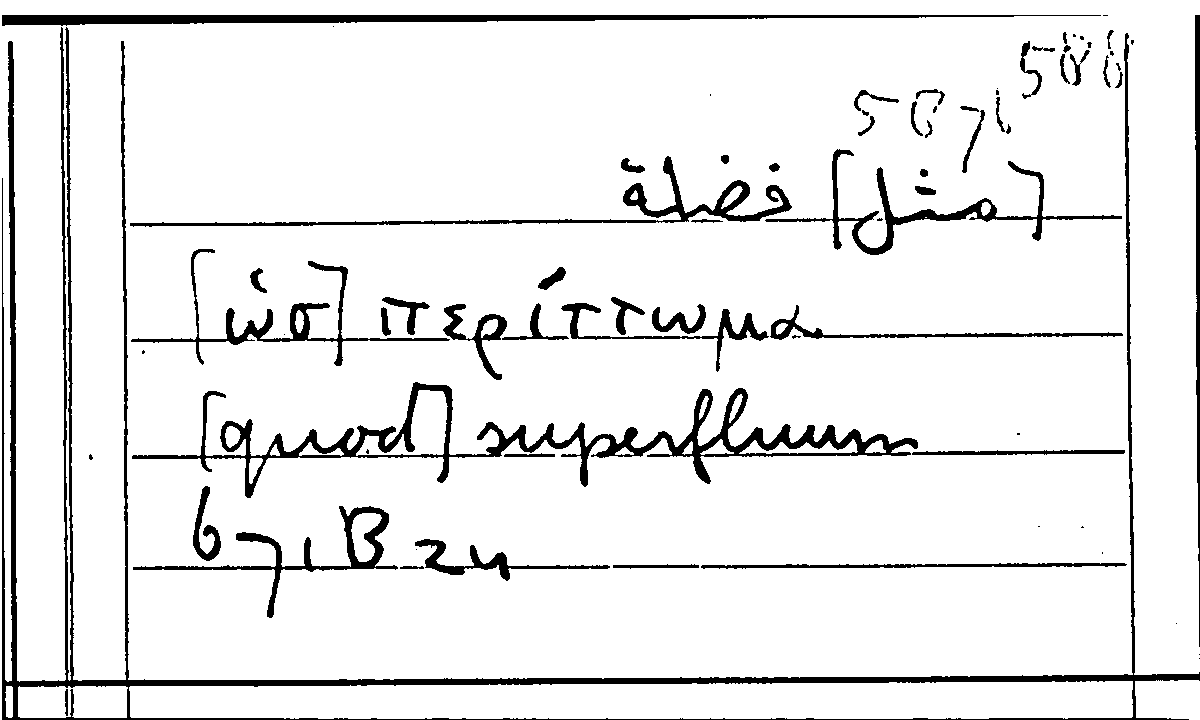 588
[مثل] فضلة
[ὡσ] περίττωμα
[quod] superfluum
671 B 24